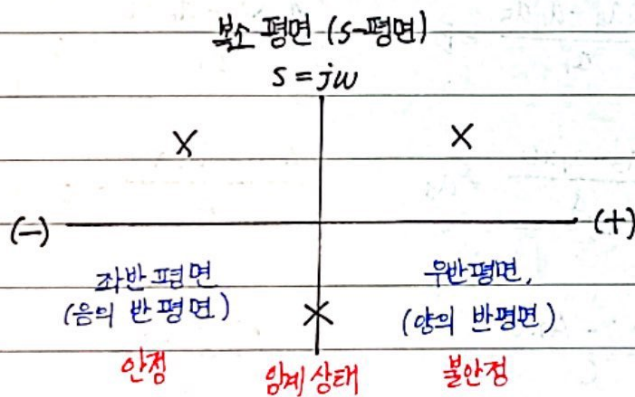 복소 평면 (s-평면)
s = jω
X X
(-) (+)
좌반평면 우반평면,
(음의 반평면) (양의 반평면)
X
안정 임계상태 불안정